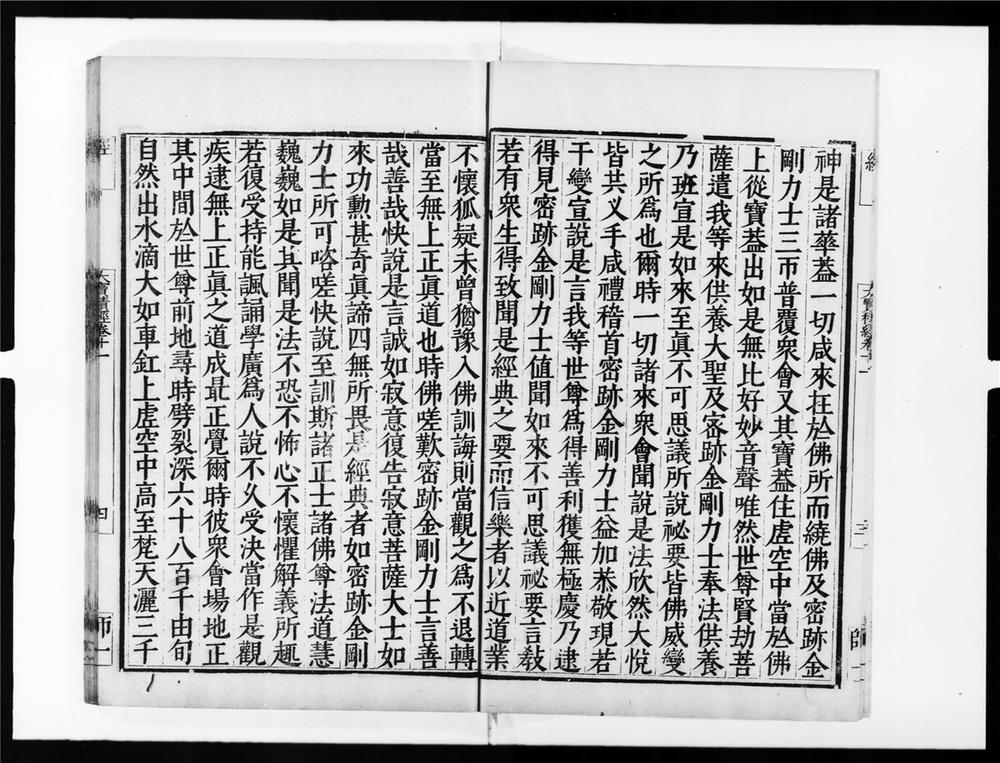 神是諸華蓋一切咸來在於佛所而繞佛及密跡金
剛力士三帀普覆衆會又其寶蓋住虛空中當於佛
上從寶蓋出如是無比好妙音聲唯然世尊賢劫菩
薩遣我等來供養大聖及密跡金剛力士奉法供養
乃班宣是如來至眞不可思議所說祕要皆佛威變
之所爲也爾時一切諸來衆會聞說是法欣然大悅
皆共叉手咸禮稽首密跡金剛力士益加恭敬現若
干變宣說是言我等世尊爲得善利獲無極慶乃逮
得見密跡金剛力士値聞如來不可思議祕要言敎
若有衆生得致聞是經典之要而信樂者以近道業
不懷狐疑未曾猶豫入佛訓誨則當觀之爲不退轉
當至無上正眞道也時佛嗟歎密跡金剛力士言善
哉善哉快說是言誠如寂意復告寂意菩薩大士如
來功勳甚奇眞諦四無所畏是經典者如密跡金剛
力士所可咯嗟快說至訓斯諸正士諸佛尊法道慧
巍巍如是其聞是法不恐不怖心不懷懼解義所趣
若復受持能諷誦學廣爲人說不久受決當作是觀
疾逮無上正眞之道成最正覺爾時彼衆會場地正
其中間於世尊前地尋時劈裂深六十八百千由旬
自然出水滴大如車釭上虛空中高至梵天灑三千
經
四
師一